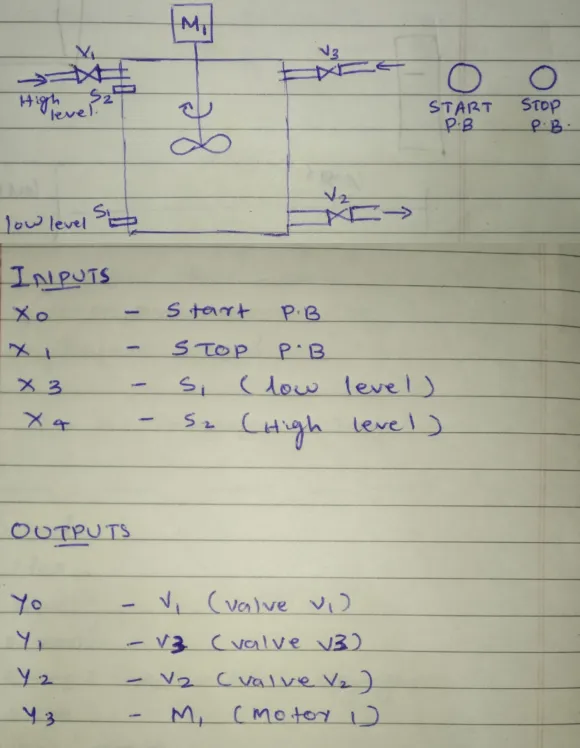 M1
V1
V3
High level.
S2
START P.B
STOP P.B.
low level
S1
V2
INPUTS
X0 - Start P.B
X1 - STOP P.B
X3 - S1 (low level)
X4 - S2 (High level)
OUTPUTS
Y0 - V1 (valve V1)
Y1 - V3 (valve V3)
Y2 - V2 (valve V2)
Y3 - M1 (Motor 1)